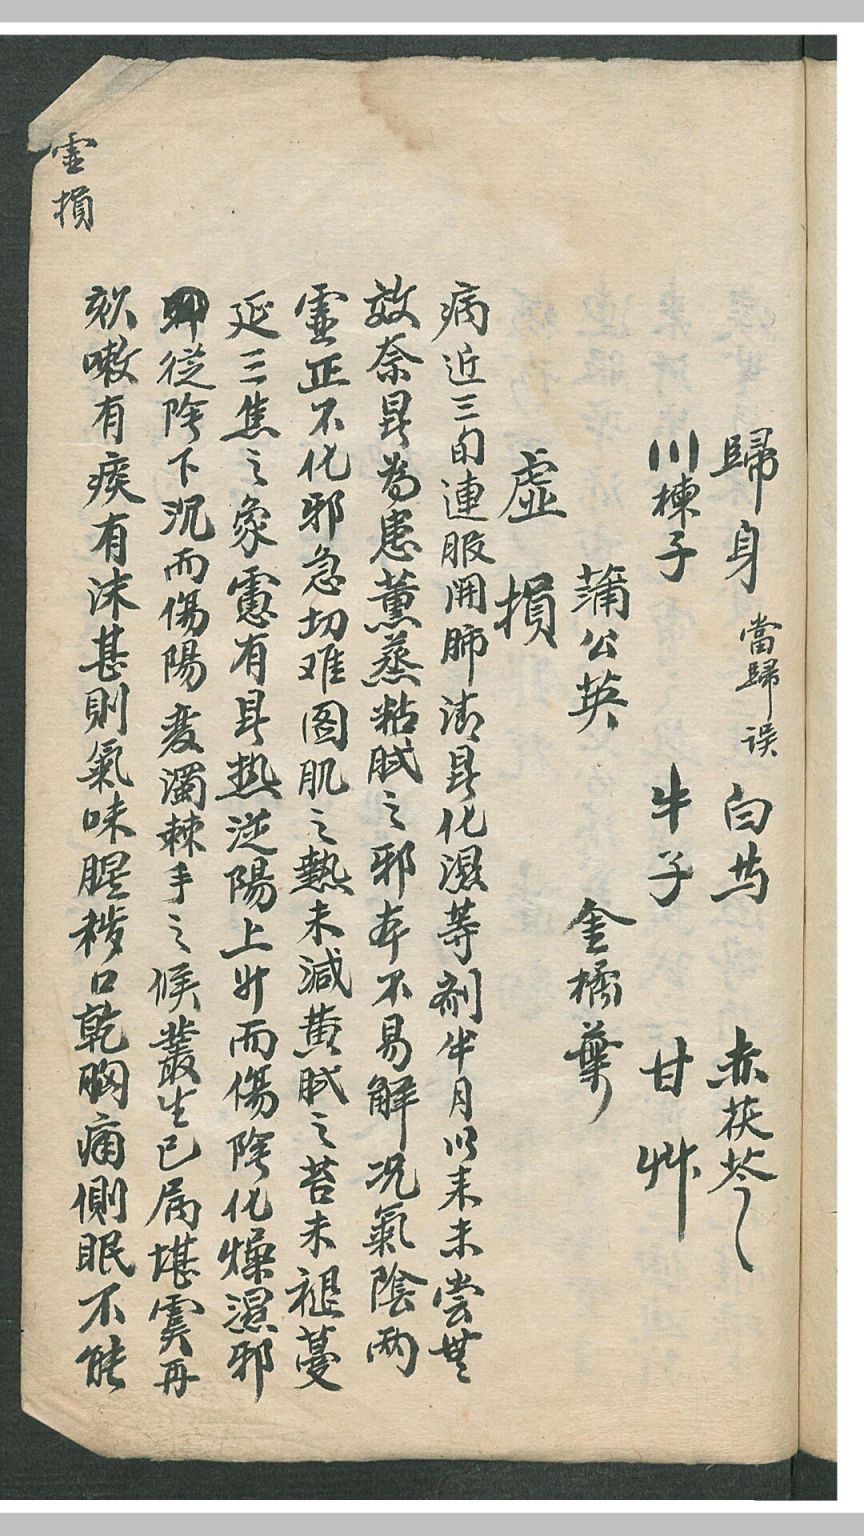 歸身 當歸误 白芍 赤茯苓
川楝子 牛子 甘艸
蒲公英 金橘葉
虛損
病近三旬連服開肺清昙化濕等剤半月以来未尝無
效奈昙為患薰蒸粘膩之邪本不易解况氣陰两
虛正不化邪急切难图肌之熱未減黄膩之苔未褪蔓
延三焦之象慮有昙热逆陽上升而傷陰化燥濕邪
從陰下沉而傷陽变濁棘手之候叢生已属堪虞再
欬嗽有痰有沫甚則氣味腥秽口乾胸痛側眠不能
虛損